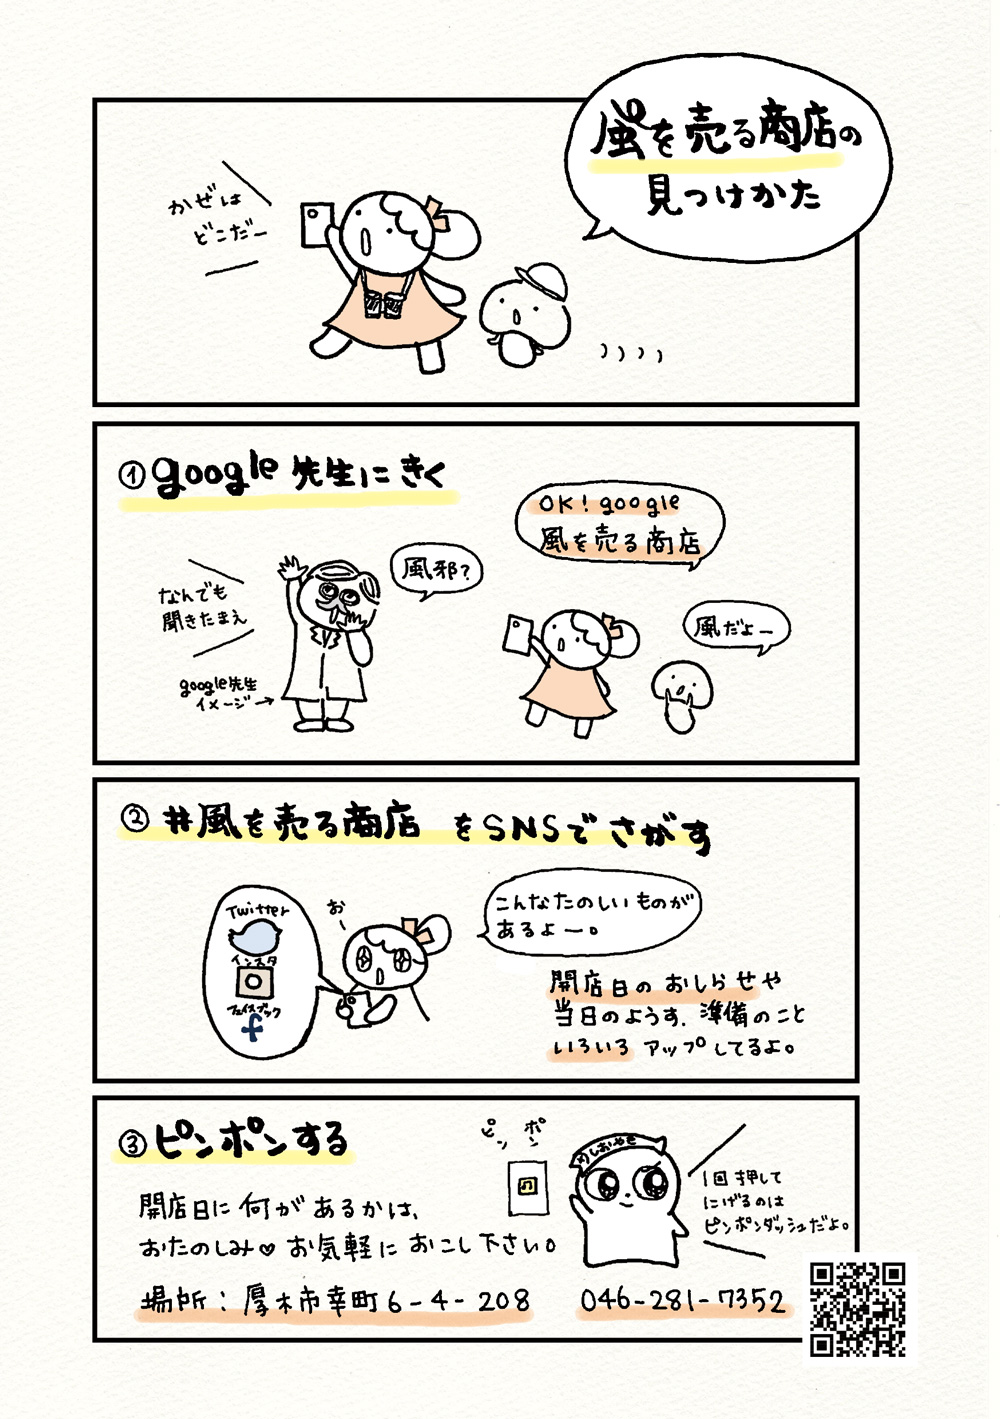 風を売る商店の
見つけかた
かぜは
どこだー
①google先生にきく
OK!google
風を売る商店
風邪?
なんでも
聞きたまえ
風だよー
google先生
イメージ→
②#風を売る商店 をSNSでさがす
Twitter
インスタ
フェイスブック
f
おー
こんなたのしいものが
あるよー。
開店日のおしらせや
当日のようす、準備のこと
いろいろアップしてるよ。
③ピンポンする
ピンポン
しおやき
1回押して
にげるのは
ピンポンダッシュだよ。
開店日に何があるかは、
おたのしみ♡お気軽におこし下さい。
場所:厚木市幸町6-4-208 046-281-7352